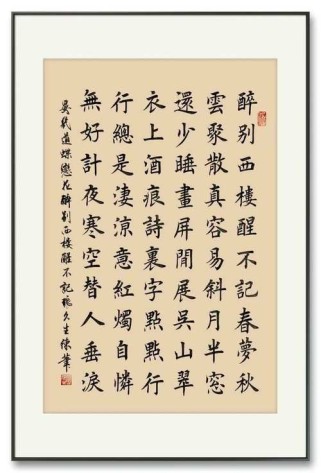 醉别西樓醒不記春夢秋
雲聚散真容易斜月半窓
還少睡畫屏閒展吳山翠
衣上酒痕詩裏字點點行
行總是淒涼意紅燭自憐
無好計夜寒空替人垂淚
晏幾道蝶戀花醉别西樓醒不記